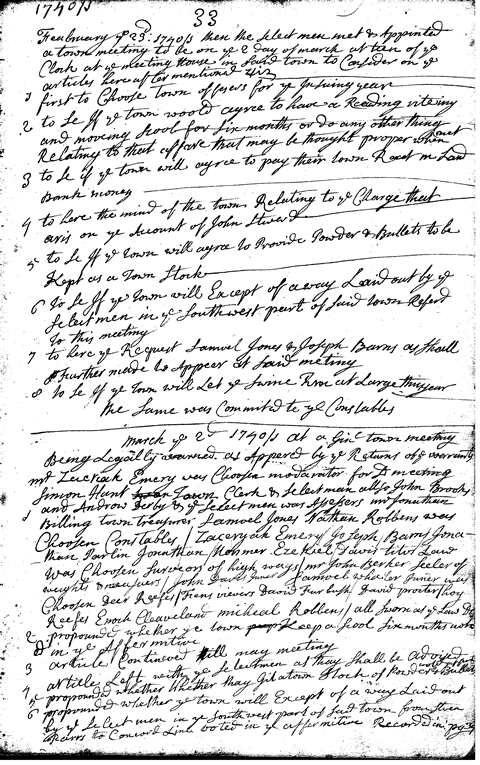 1740/1
33
Feubruary ye 23d: 1740/1 then the Select men met & Appointed
a town meeting to be on ye 2 day of march at teen of ye
Clock at ye meeting House in Said town to Consider on ye
articles here after mentioned viz
1 first to Choose town officers for ye Insuing year
2 to Se If ye town woold agree to have a Reading riteing
and moveing Scool for Six months or do any other thing
Relating to that affare that may be thought proper when met
3 to Se if ye town will agree to pay their town Reat in Land
Bank money
4 to here the mind of the town Relating to ye Charge that
aris on ye Account of John Stward
5 to Se If ye town will agre to Provide Powder & Bullets to be
Kept as a Town Stock
6 to Se If ye town will Except of a way Laid out by ye
Select men in ye Southwest part of Said town Referd
to this meeting
7 to here ye Request Samuel Jones & Joseph Barns as Shall
Further made to Appeer at Said meting
8 to Se If ye town will Let ye Swine Run at Large this year
the Same was Commited to ye Constables
march ye 2d 1740/1 at a Ginl town meeting
Being Legally warned as Appered by ye Returns of ye warrants
mr Zacriah Emery was Choosen modarator for Sd meeting
Simon Hunt Town Clerk & Select man allso John Brooks
1 and Andrew Derby & ye Select men was mr Jonathan
Billing town treasurer Samuel Jones Nathan Robbens was
Choosen Constables / Zaceryah Emery Joseph Barns Jona-
than Partlin Jonathan Hosmer Ezekiel Davis
was Choosen Survears of high ways / mr John Barker Seeler of
weights & measuers / John Davis Samuel Wheeler Juner was
Choosen Deer Reefes / Fens viewers David Farbush, David procter / hog
Reefes Enoch Cleaveland micheal Robens / all Sworn as ye Law
2 propounded whether ye town Keep a Scool Six months voted
in ye Affermitive
3 article Continewed till may meeting
4 article Left with ye Selectmen as thay Shall be advised
5 propounded whether thay Git a town Stock of Powder & Bullits
6 propounded whether ye town will Except of a way Laid out
by ye Select men in ye Southwest part of Said town from
to Concord Line voted in ye affirmitive Recorded in